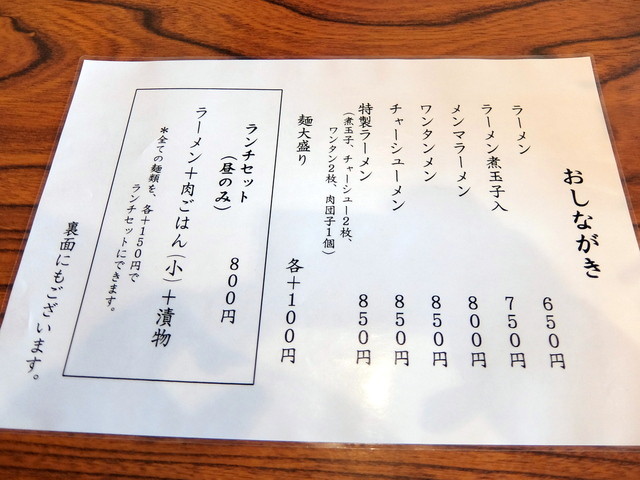 おしながき
ラーメン 650円
ラーメン煮玉子入 750円
メンマラーメン 800円
ワンタンメン 850円
チャーシューメン 850円
特製ラーメン 850円
(煮玉子、チャーシュー2枚、
ワンタン2枚、肉団子1個)
麺大盛り 各+100円
ランチセット
(昼のみ) 800円
ラーメン+肉ごはん(小)+漬物
*全ての麺類を、各+150円で
ランチセットにできます。
裏面にもございます。